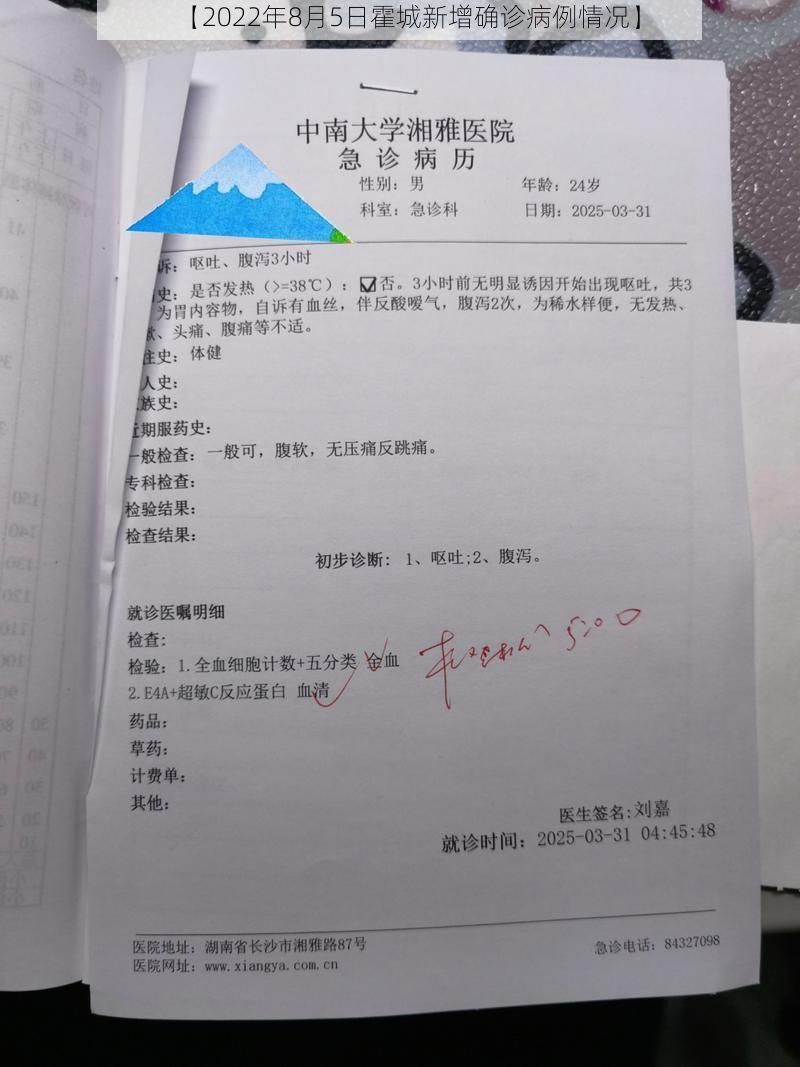 【2022年8月5日霍城新增确诊病例情况】
中南大学湘雅医院
急诊病历
性别：男 年龄：24岁
科室：急诊科 日期：2025-03-31
诉：呕吐、腹泻3小时
史：是否发热（>=38℃）：☑否。3小时前无明显诱因开始出现呕吐，共3
为胃内容物，自诉有血丝，伴反酸嗳气，腹泻2次，为稀水样便，无发热、
、头痛、腹痛等不适。
往史：体健
人史：
族史：
近期服药史：
一般检查：一般可，腹软，无压痛反跳痛。
专科检查：
检验结果：
检查结果：
初步诊断： 1、呕吐;2、腹泻。
就诊医嘱明细
检查：
检验：1.全血细胞计数+五分类 全血
2.E4A+超敏C反应蛋白 血清
5:00
药品：
草药：
计费单：
其他：
医生签名:刘嘉
就诊时间：2025-03-31 04:45:48
医院地址：湖南省长沙市湘雅路87号 急诊电话：84327098
医院网址：www.xiangya.com.cn